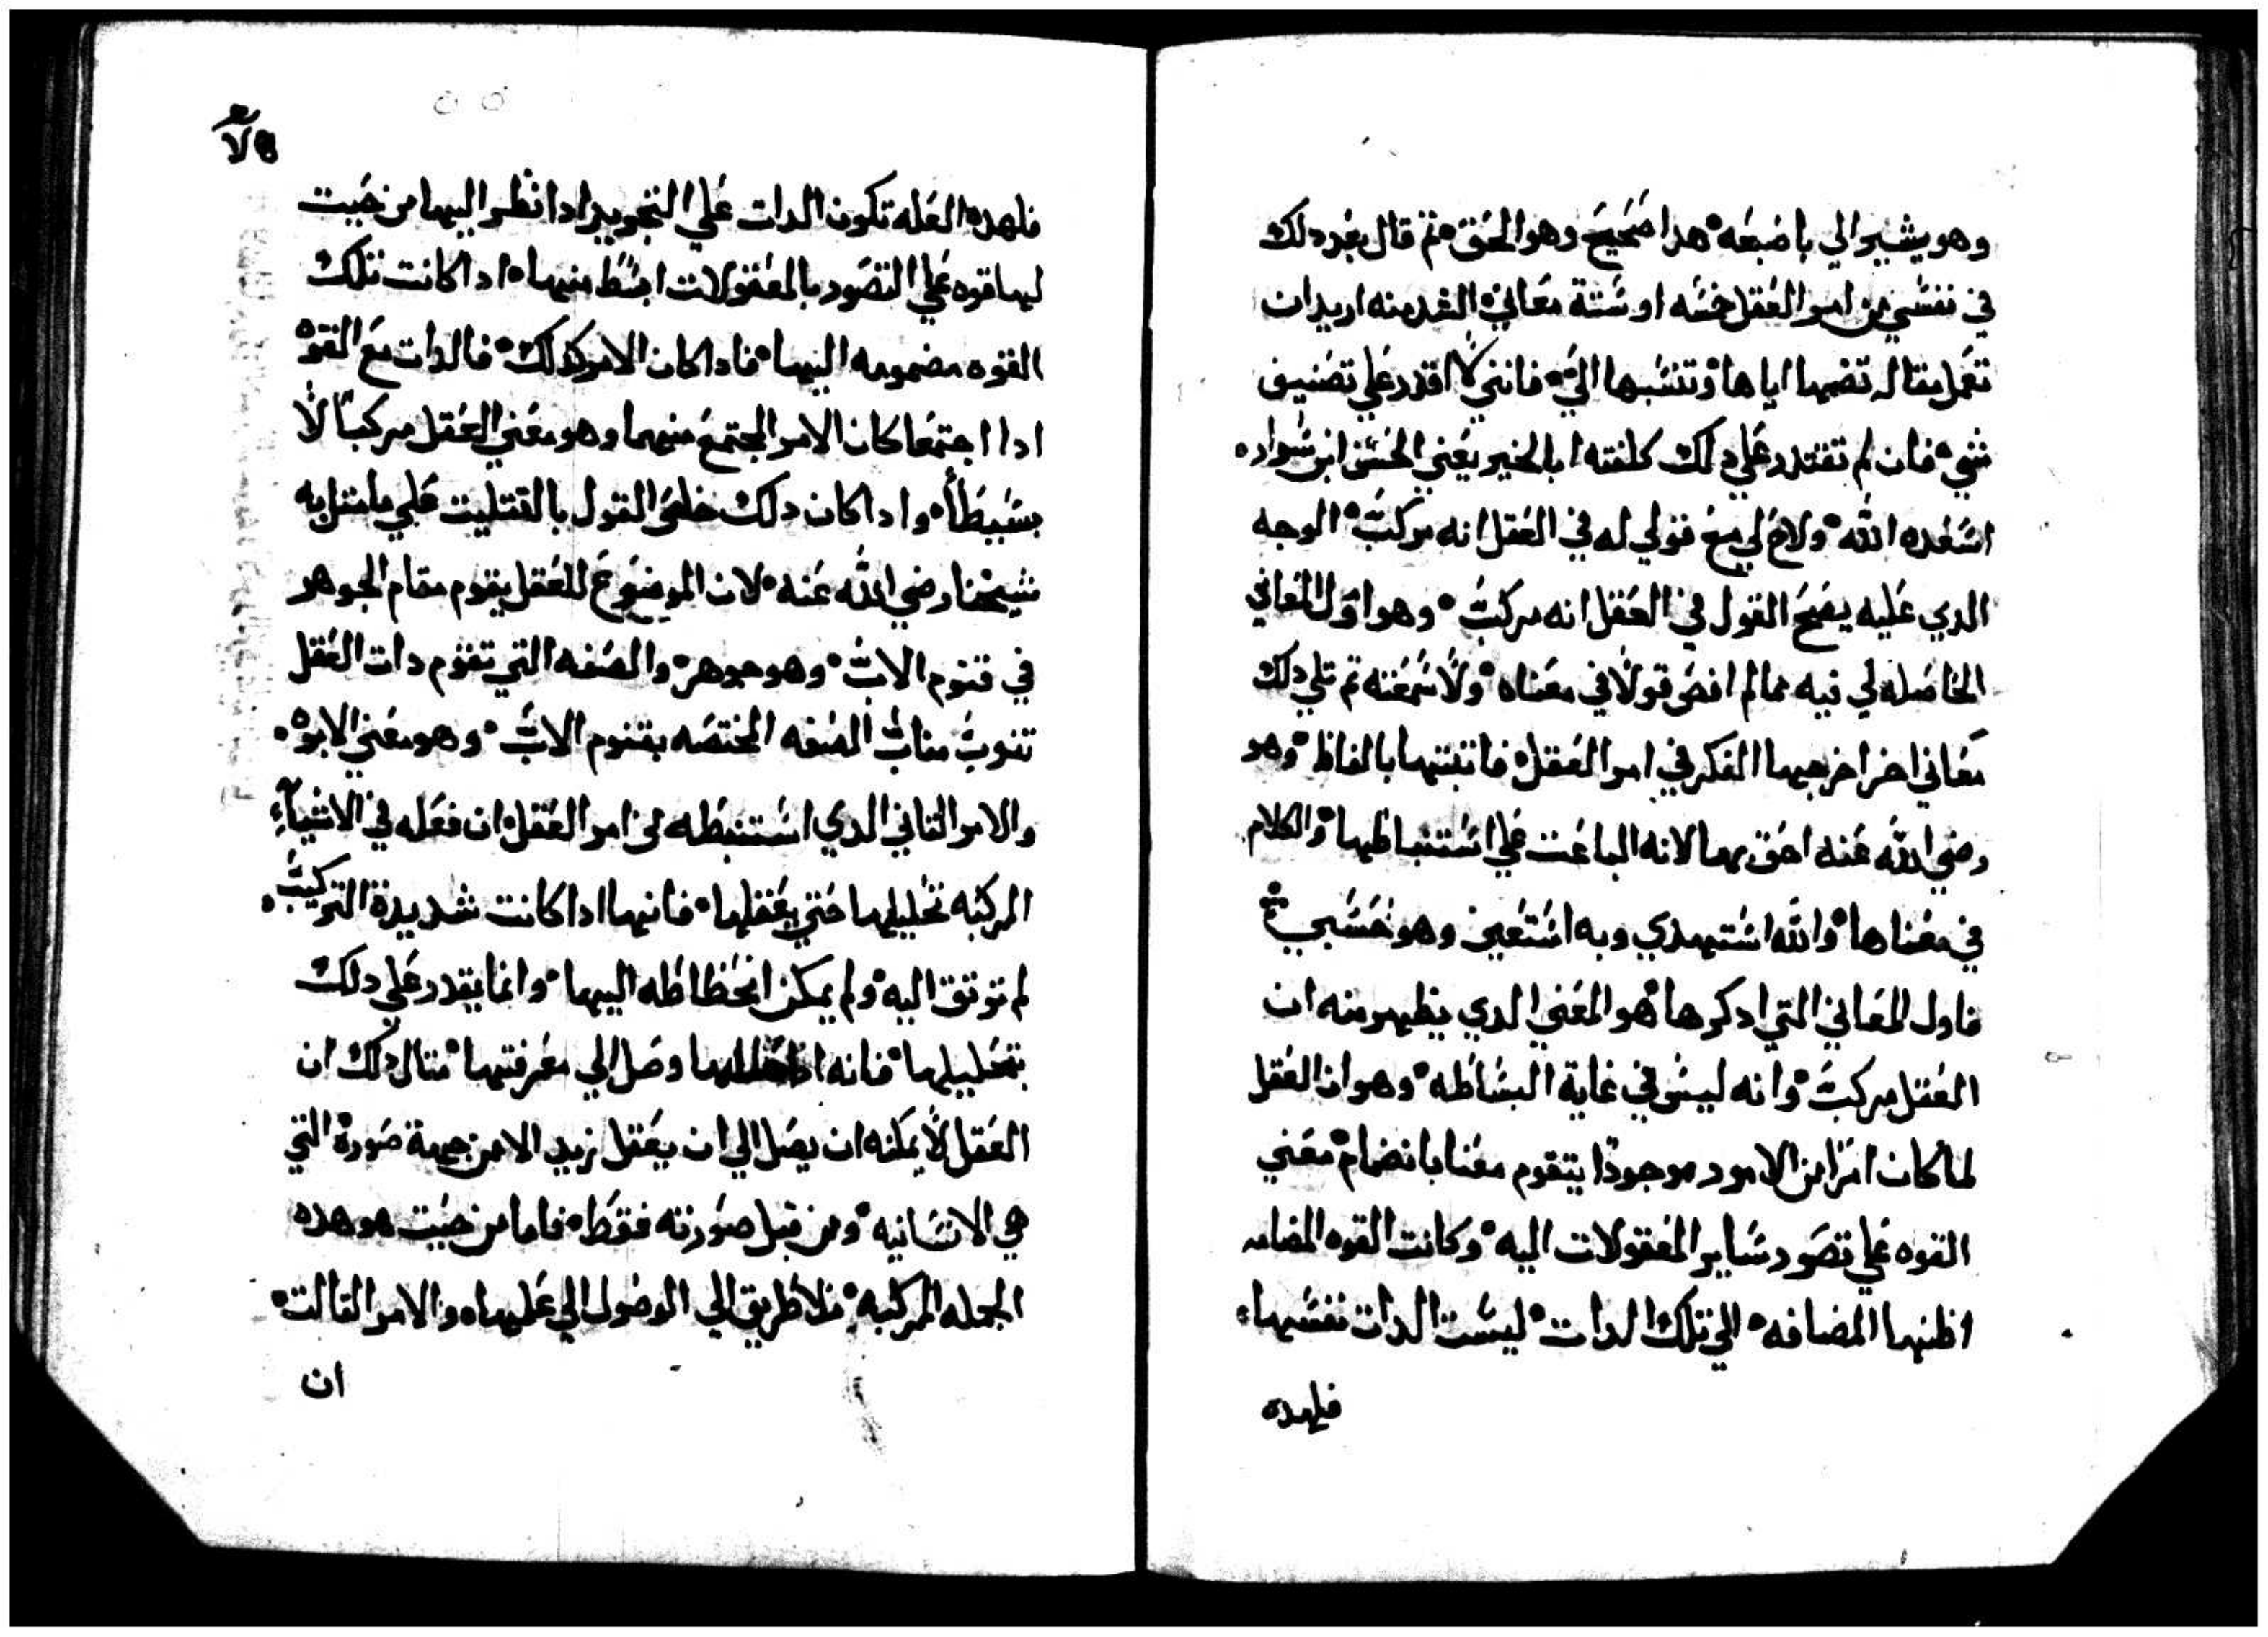 وهو يشير الي باصبعه هدا صحيح وهو الحق تم قال بعد دلك
في نفسي من امر العقل خمسه او ستة معاني الشد منه اريد ان
تعمل مقاله تضمها اياها وتنسبها الي فانني لا اقدر علي تصنيف
شي فان لم تقتدر علي دلك كلفته ابا الخير يعني الحسن ابن سواده
اسعده الله ولاح لي مع قولي له في العقل انه مركب الوجه
الدي عليه يصح القول في العقل انه مركب وهو اول المعاني
الحاصله لي فيه مما لم افض قولا في معناه ولا سمعته تم تلي دلك
معاني اخر اخرجها الفكر في امر العقل فاتبتها بالفاظ وهو
رضي الله عنه احق بها لانه الباعت علي استنباطها والكلام
في معناها والله استهدي وبه استعين وهو حسبي
فاول المعاني التي ادكرها هو المعني الدي يظهر منه ان
العقل مركب وانه ليس في غاية البساطه وهو ان العقل
لما كان امرا من الامور موجودا يتقوم معنا بانضمام معني
القوه علي تصور ساير المعقولات اليه وكانت القوه المضامه
اظنها المضافه الي تلك الدات ليست الدات نفسها
فلهده
فلهده العله تكون الدات علي التجريد ادا نظر اليها من حيت
ليها قوه علي التصور بالمعقولات ابسط منها ادا كانت تلك
القوه مضمومه اليها فادا كان الامر كدلك فالدات مع القوه
ادا اجتمعا كان الامر المجتمع منهما وهو معني العقل مركبا لا
بسيطا وادا كان دلك خلص القول بالتتليت علي ما متل به
شيخنا رضي الله عنه لان الموضوع للعقل يقوم مقام الجوهر
في قنوم الاب وهو جوهر والصفه التي تقوم دات العقل
تنوب مناب الصفه المختصه بقنوم الاب وهو معني الابوه
والامر التاني الدي استنبطه من امر العقل ان فعله في الاشياء
المركبه تحليلها حتي يعقلها فانها ادا كانت شديدة التركيب
لم توتق اليه ولم يمكن انحطاطه اليها وانما يقدر علي دلك
بتحليلها فانه ادا حللها وصل الي معرفتها متال دلك ان
العقل لا يمكنه ان يصل الي ان يعقل زيد الا من جهة صورة التي
هي الانسانيه ومن قبل صورته فقط فاما من حيت هو هده
الجمله المركبه فلا طريق الي الوصول الي علمها والامر التالت
ان